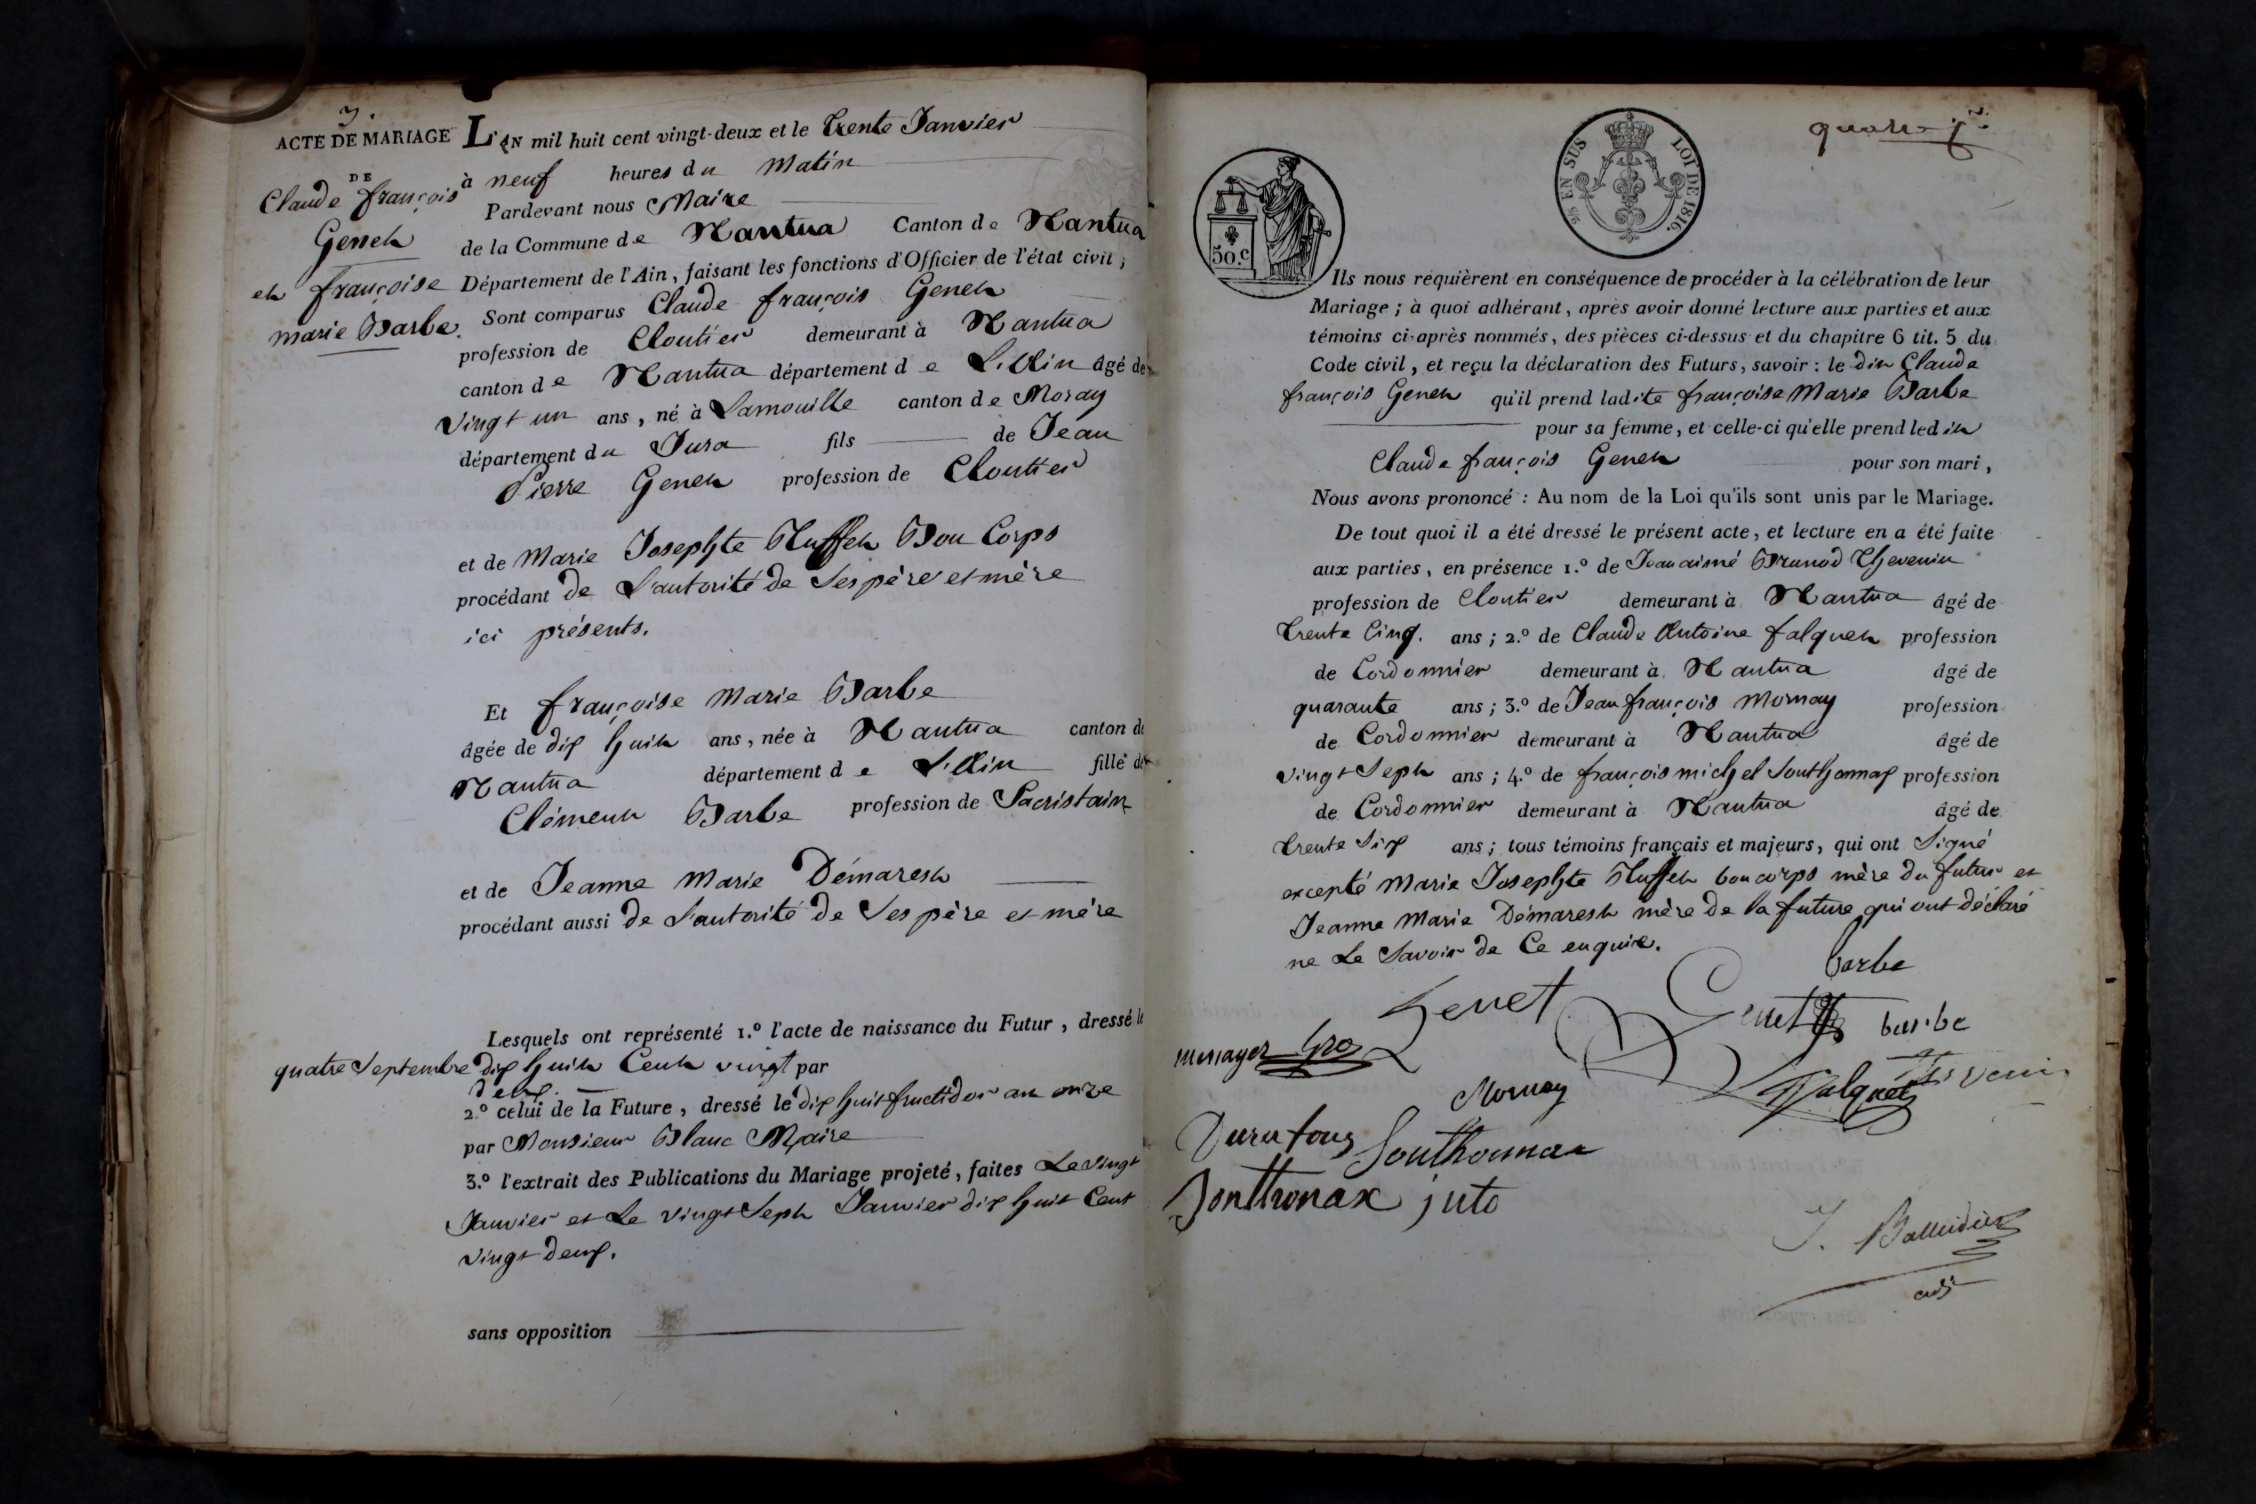 3.
ACTE DE MARIAGE
DE
Claude françois
Genet
et françoise
marie Barbe.
L'AN mil huit cent vingt-deux et le trente Janvier
à neuf heures du Matin
Pardevant nous Maire
de la Commune de Nantua Canton de Nantua
Département de l'Ain, faisant les fonctions d'Officier de l'état civil;
Sont comparus Claude françois Genet
profession de Cloutier demeurant à Nantua
canton de Nantua département de L'Ain âgé de
vingt un ans, né à Lamouille canton de Moray
département du Jura fils de Jean
Pierre Genet profession de Cloutier
et de Marie Josephte Buffet Bon Corps
procédant de L'autorité de Ses père et mère
ici présents.
Et françoise Marie Barbe
âgée de dix huit ans, née à Nantua canton de
Nantua département de L'Ain fille de
Clément Barbe profession de Sacristain
et de Jeanne Marie Démarest
procédant aussi de L'autorité de Ses père et mère
Lesquels ont représenté 1.º l'acte de naissance du Futur, dressé le
quatre Septembre dix huit Cent vingt par
deux.
2.º celui de la Future, dressé le dix huit fructidor an onze
par Monsieur Blanc Maire
3.º l'extrait des Publications du Mariage projeté, faites Le vingt
Janvier et Le vingt Sept Janvier dix huit Cent
vingt deux.
sans opposition
50.c
EN SUS LOI DE 1816.
Ils nous requièrent en conséquence de procéder à la célébration de leur
Mariage; à quoi adhérant, après avoir donné lecture aux parties et aux
témoins ci-après nommés, des pièces ci-dessus et du chapitre 6 tit. 5 du
Code civil, et reçu la déclaration des Futurs, savoir: le dit Claude
françois Genet qu'il prend ladite françoise Marie Barbe
pour sa femme, et celle-ci qu'elle prend ledit
Claude françois Genet pour son mari,
Nous avons prononcé: Au nom de la Loi qu'ils sont unis par le Mariage.
De tout quoi il a été dressé le présent acte, et lecture en a été faite
aux parties, en présence 1.º de Jean aimé Brunod Thevenin
profession de Cloutier demeurant à Nantua âgé de
trente Cinq. ans; 2.º de Claude Antoine falquet profession
de Cordonnier demeurant à Nantua âgé de
quarante ans; 3.º de Jean françois Mornay profession
de Cordonnier demeurant à Nantua âgé de
vingt Sept ans; 4.º de françois michel Southonnax profession
de Cordonnier demeurant à Nantua âgé de
trente Six ans; tous témoins français et majeurs, qui ont Signé
excepté Marie Josephte Buffet boncorps mère du futur et
Jeanne Marie Démarest mère de la future qui ont déclaré
ne Le Savoir de Ce enquise.
barbe
Genet Genet barbe
Mornay falquet
Southonnax